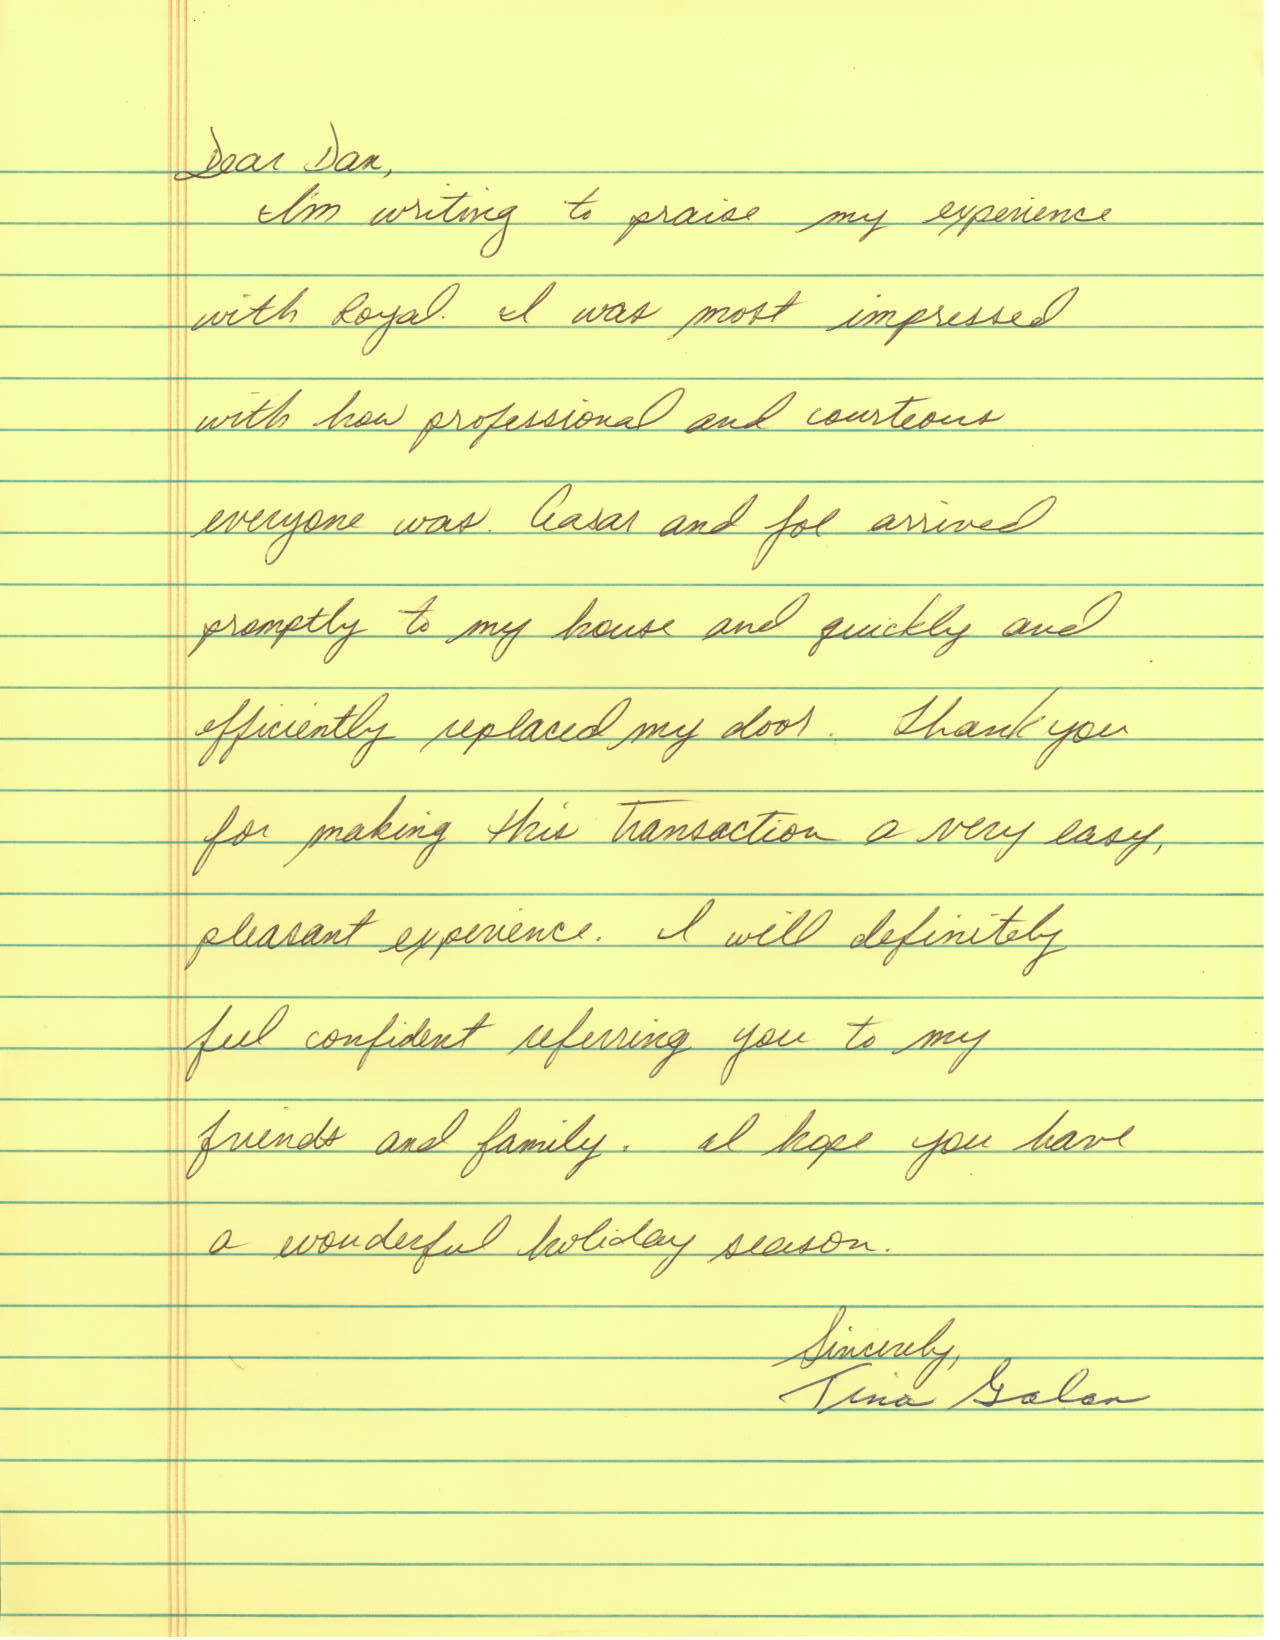 Dear Dan,
I'm writing to praise my experience
with Royal. I was most impressed
with how professional and courteous
everyone was. Ceasar and Joe arrived
promptly to my house and quickly and
efficiently replaced my door. Thank you
for making this transaction a very easy,
pleasant experience. I will definitely
feel confident referring you to my
friends and family. I hope you have
a wonderful holiday season.
Sincerely,
Tina Galan